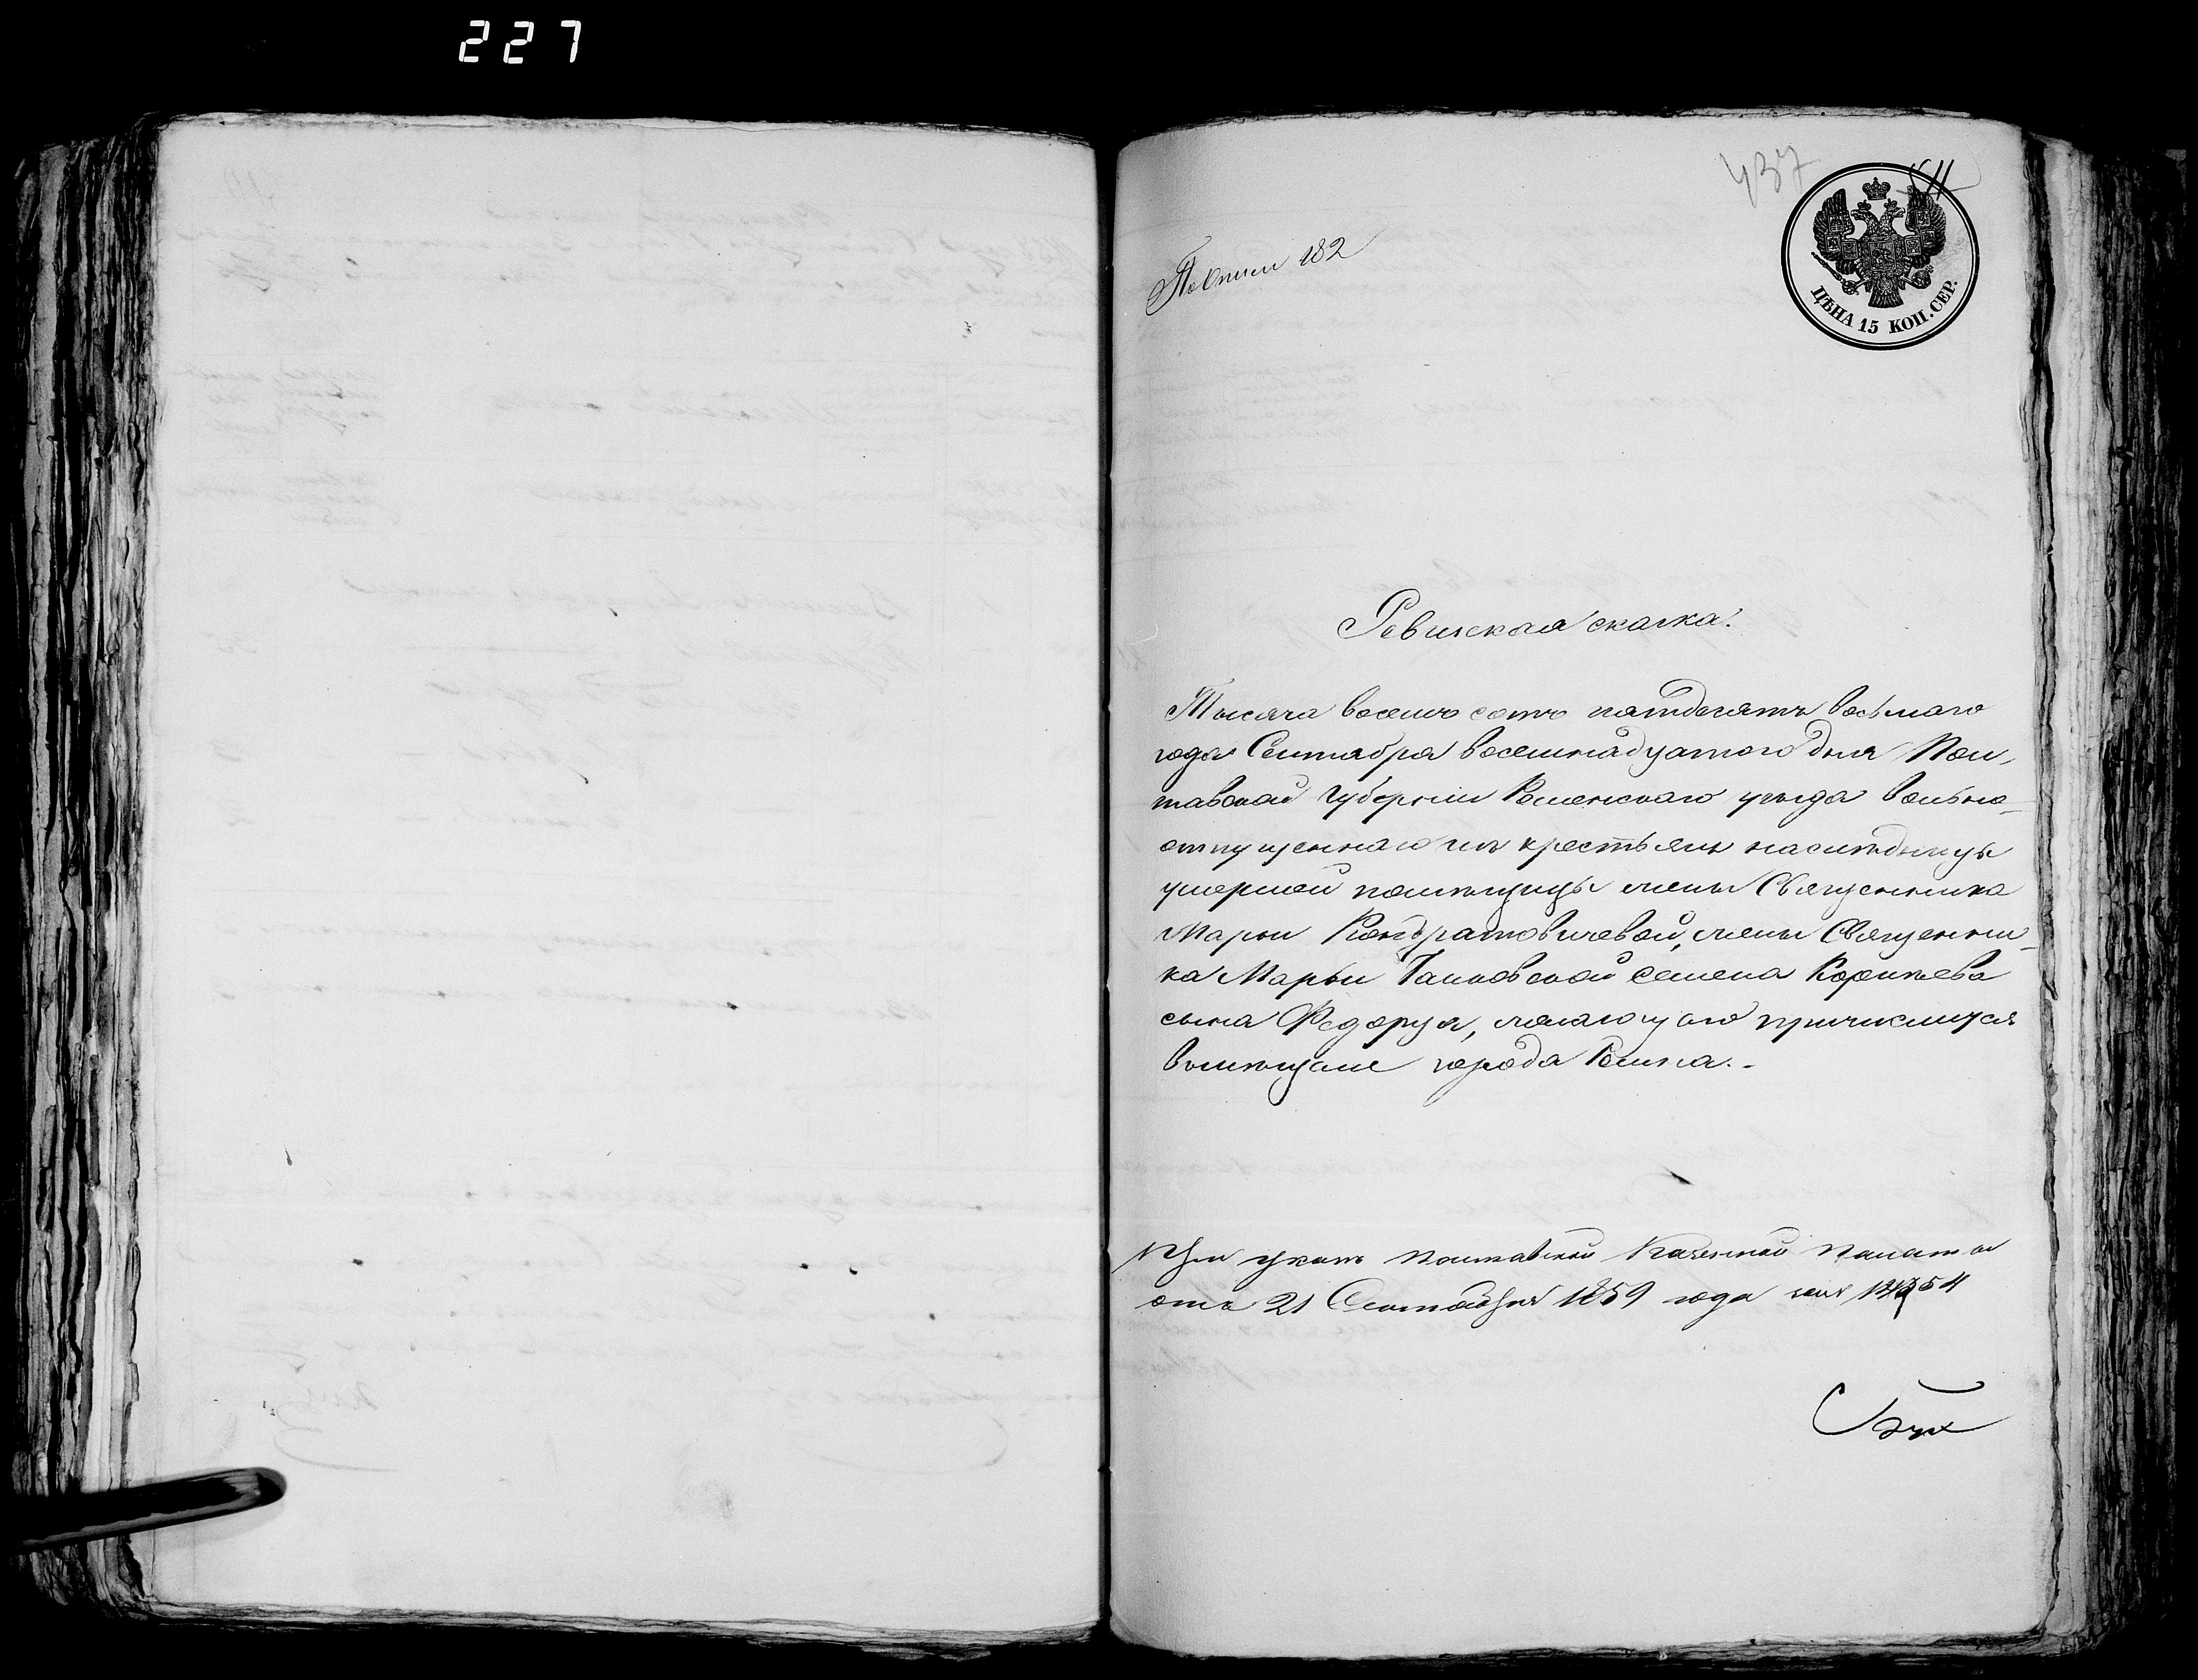 227
437
ЦѢНА 15 КОП. СЕР.
По Описи 182
Ревизская сказка.
Тысяча восемь сотъ пятдесятъ восьмаго
года Сентября восемнадцатого дня Пол-
тавской Губерніи Роменскаго уѣзда вольно-
отпущеннаго изъ крестьянъ наслѣдницы
умершей помѣщицы жены Священника
Марьи Кондратовичевой, жены Священни-
ка Марьи Галковской Семена Корнѣева
сына Федоруца, желающаго причислится
вымѣщане города Ромна.
При указѣ Полтавской Казенной палаты
отъ 21 Сентября 1859 года за №